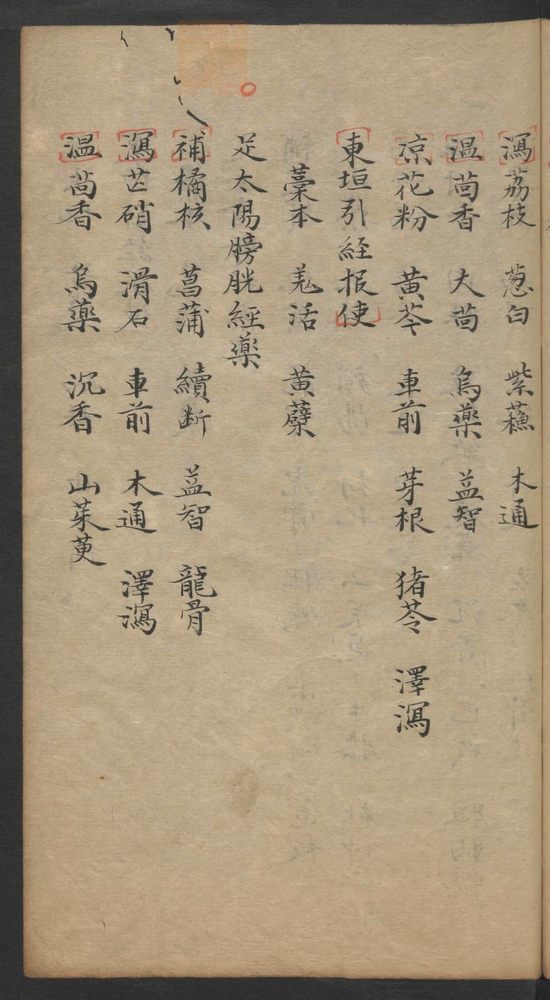 瀉荔枝 葱白 紫蘓 木通
温茴香 大茴 烏藥 益智
凉花粉 黄芩 車前 芽根 猪苓 澤瀉
東垣引經报使
藁本 羗活 黄蘗
足太陽膀胱經藥
補橘核 菖蒲 續断 益智 龍骨
瀉芒硝 滑石 車前 木通 澤瀉
温茴香 烏藥 沉香 山茱萸